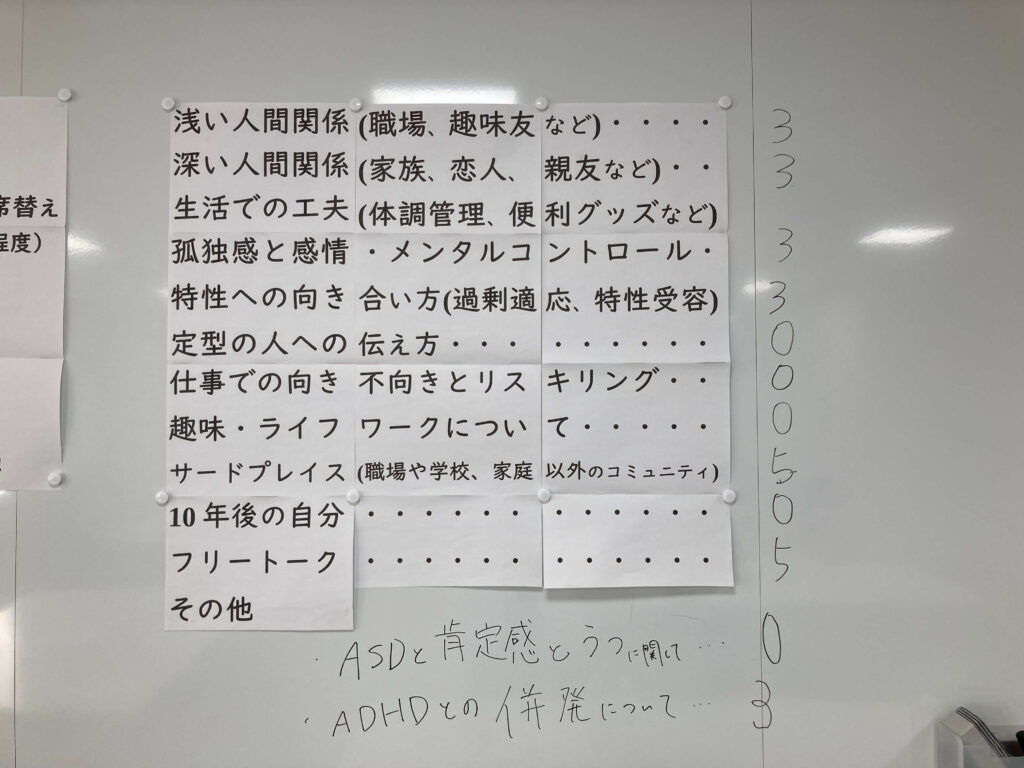 席替え
程度）
浅い人間関係 (職場、趣味友 など)・・・・ 3
深い人間関係 (家族、恋人、 親友など)・・ 3
生活での工夫 (体調管理、便利グッズなど)
孤独感と感情・メンタルコントロール・ 3
特性への向き合い方(過剰適応、特性受容) 3
定型の人への伝え方・・・ ・・・・・・ 0
仕事での向き不向きとリスキリング・・ 0
趣味・ライフワークについて・・・・・ 0
サードプレイス (職場や学校、家庭以外のコミュニティ) 5
10年後の自分 ・・・・・・ ・・・・・・ 0
フリートーク ・・・・・・ ・・・・・・ 5
その他
・ASDと肯定感とうつに関して… 0
・ADHDとの併発について… 3